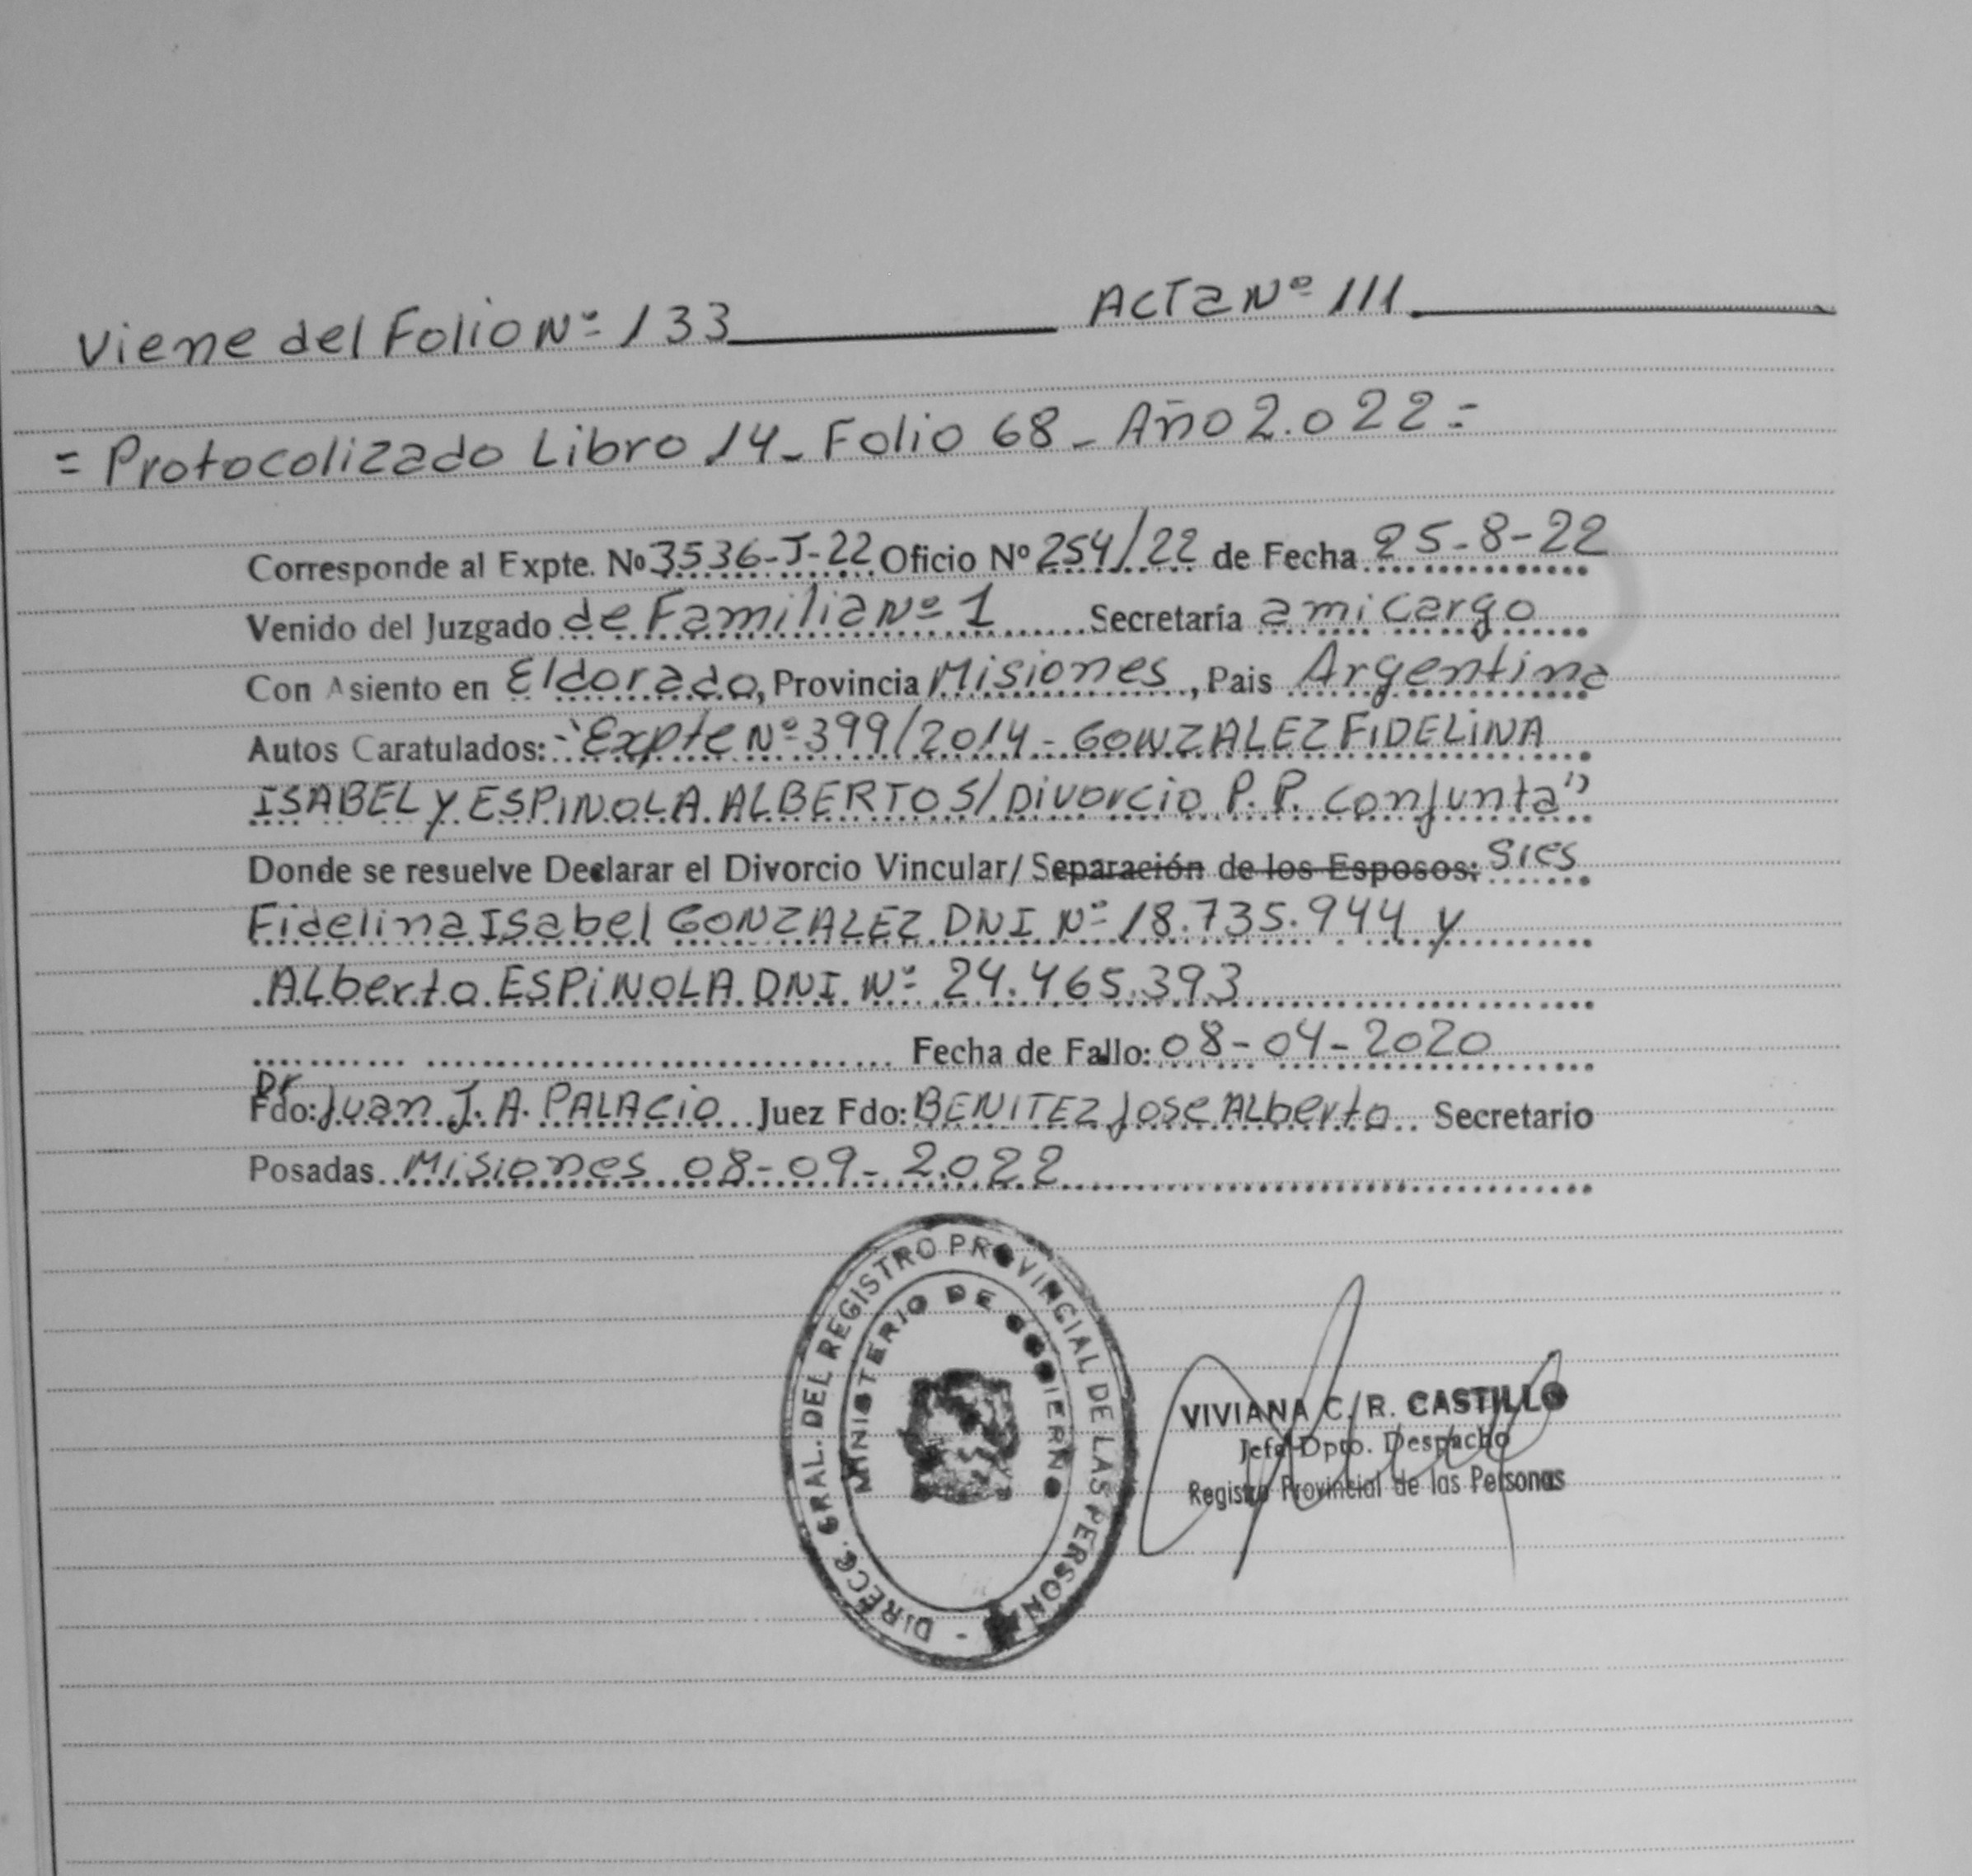 Viene del Folio Nº 133 Acta Nº 111
= Protocolizado Libro 14 - Folio 68 - Año 2.022 =
Corresponde al Expte. Nº 3536-J-22 Oficio Nº 254/22 de Fecha 25-8-22
Venido del Juzgado de Familia Nº 1 Secretaría a mi cargo
Con Asiento en Eldorado, Provincia Misiones, Pais Argentina
Autos Caratulados: "Expte Nº 399/2014 - GONZALEZ FIDELINA
ISABEL Y ESPINOLA ALBERTO S/ Divorcio P.P. Conjunta"
Donde se resuelve Declarar el Divorcio Vincular/ Separación de los Esposos:
Fidelina Isabel GONZALEZ DNI Nº 18.735.944 y
Alberto ESPINOLA DNI Nº 24.465.393
Fecha de Fallo: 08-04-2020
Fdo: Dr Juan J. A. PALACIO Juez Fdo: BENITEZ Jose Alberto Secretario
Posadas Misiones 08-09-2.022
DIRECC. GRAL. DEL REGISTRO PROVINCIAL DE LAS PERSONAS -
MINISTERIO DE GOBIERNO
VIVIANA C. R. CASTILLO
Jefe Dpto. Despacho
Registro Provincial de las Personas